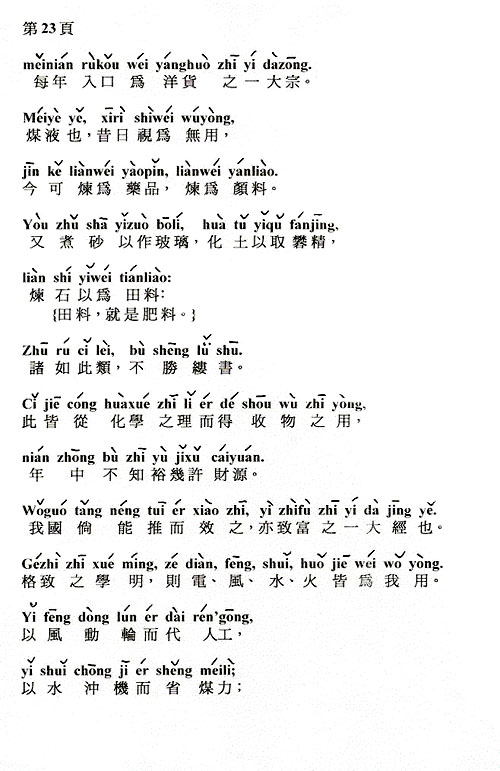 第23頁
měinián rùkǒu wéi yánghuò zhī yí dàzōng.
每年 入口 爲 洋貨 之一大宗。
Méiyè yě, xīrì shìwéi wúyòng,
煤液也,昔日視爲 無用,
jīn kě liànwéi yàopǐn, liànwéi yánliào.
今可 煉爲 藥品, 煉爲 顏料。
Yòu zhǔ shā yǐzuò bōlí, huà tǔ yǐqǔ fánjīng,
又 煮 砂 以作玻璃,化 土以取礬精,
liàn shí yǐwéi tiánliào:
煉 石 以爲 田料:
{田料,就是肥料。}
Zhū rú cǐ lèi, bù shēng lǚ shū.
諸 如此類,不 勝 縷 書。
Cǐ jiē cóng huàxué zhī lǐ ér dé shōu wù zhī yòng,
此皆 從 化學 之理而得 收 物 之 用,
nián zhōng bù zhī yù jǐxǔ cáiyuán.
年 中 不 知裕幾許 財源。
Wǒguó tǎng néng tuī ér xiào zhī, yì zhìfù zhī yí dà jīng yě.
我國 倘 能 推而 效 之,亦致富 之一大 經 也。
Gézhì zhī xué míng, zé diàn, fēng, shuǐ, huǒ jiē wéi wǒ yòng.
格致 之學 明, 則電、風、水、火 皆 爲 我 用。
Yǐ fēng dòng lún ér dài rén'gōng,
以 風 動 輪而代 人工,
yǐ shuǐ chōng jī ér shěng méilì;
以 水 沖 機而 省 煤力;